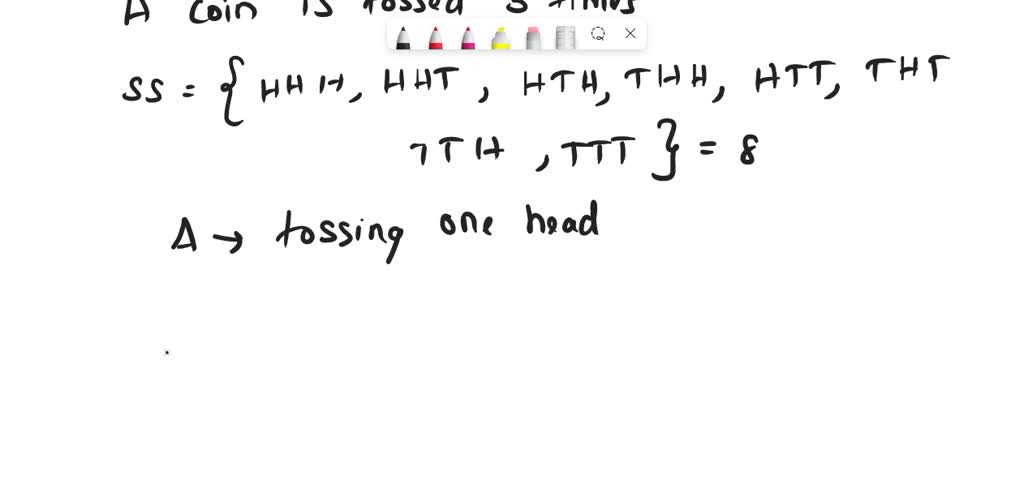 A coin is tossed 3 times
SS = { HHH, HHT, HTH, THH, HTT, THT
TTH, TTT } = 8
A → tossing one head